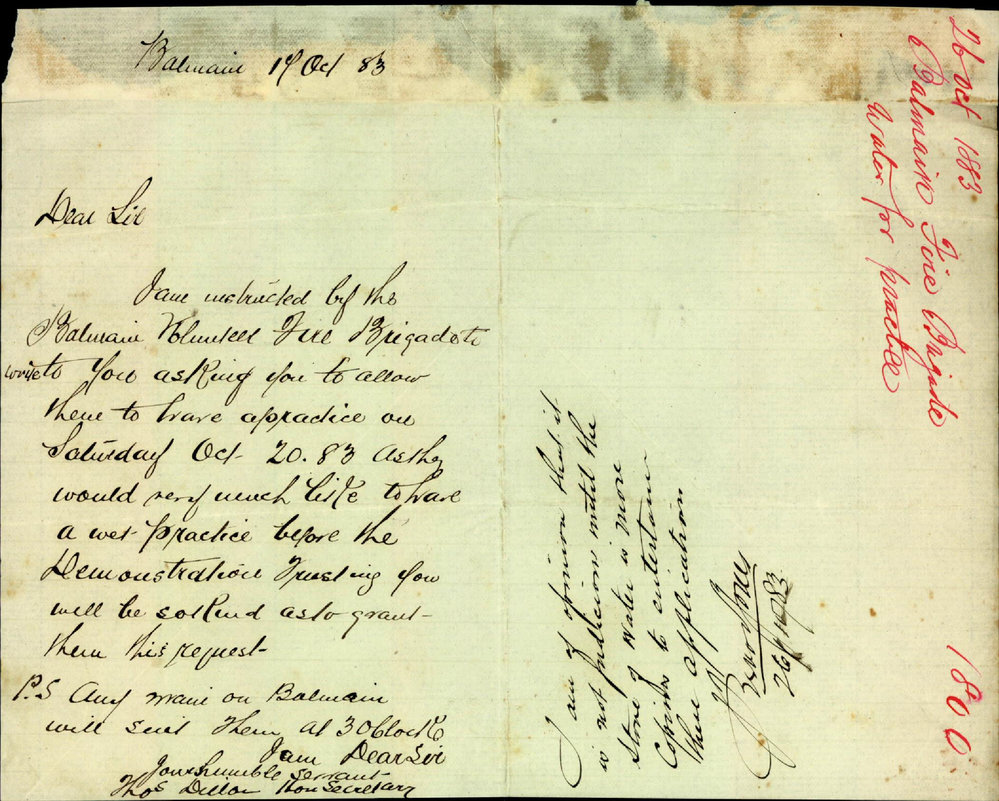 Balmain 19 Oct 83
Dear Sir
I am instructed by the
Balmain Volunteer Fire Brigade to
write to you asking you to allow
them to have a practice on
Saturday Oct 20. 83 as they
would very much like to have
a wet practice before the
Demonstration Trusting you
will be so kind as to grant
them this request
P.S Any main on Balmain
will suit them at 3 O Clock
I am Dear Sir
Your humble servant
Thos Dillon Hon Secretary
I am of opinion that it
is not judicious until the
store of water is more
copious to entertain
these applications
26/10/83
26 Oct 1883
Balmain Fire Brigade
Water for practice
1800